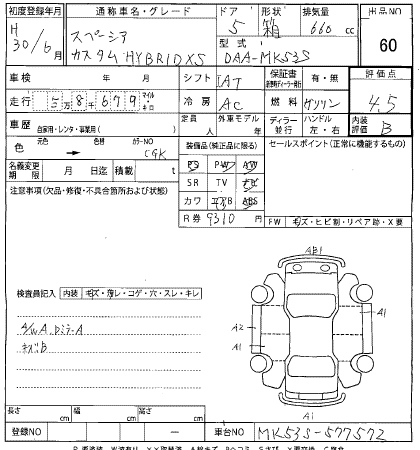 初度登録年月 通称車名・グレード ドア 形状 排気量 出品NO
H 30/6月 スペーシア カスタム HYBRID XS 5 箱 660 cc 60
型式 DAA-MK53S
車検 年 月 シフト IAT 保証書 有・無 評価点
走行 5万8千679 マイル キロ 冷房 AC 燃料 ガソリン 4.5
車歴 自家用・レンタ・事業用( ) 定員 人 外車モデル 年 ディーラー 並行 ハンドル 左・右 内装評価 B
色 元色 → 色替 カラーNO CGK 装備品(純正品に限る) セールスポイント(正常に機能するもの)
PS PW AW
名義変更期限 月 日迄 積載 t SR TV
注意事項(欠品・修復・不具合箇所および状態) カワ ABS
R券 9310 円 FW キズ・ヒビ割・リペア跡・X要
AB1
検査員記入 内装 キズ・汚レ・コゲ・穴・スレ・キレ
A2 A1
A/W A
A1
キズB
A1
長さ cm 幅 cm 高さ cm
登録NO ー 車台NO MK53S-577572